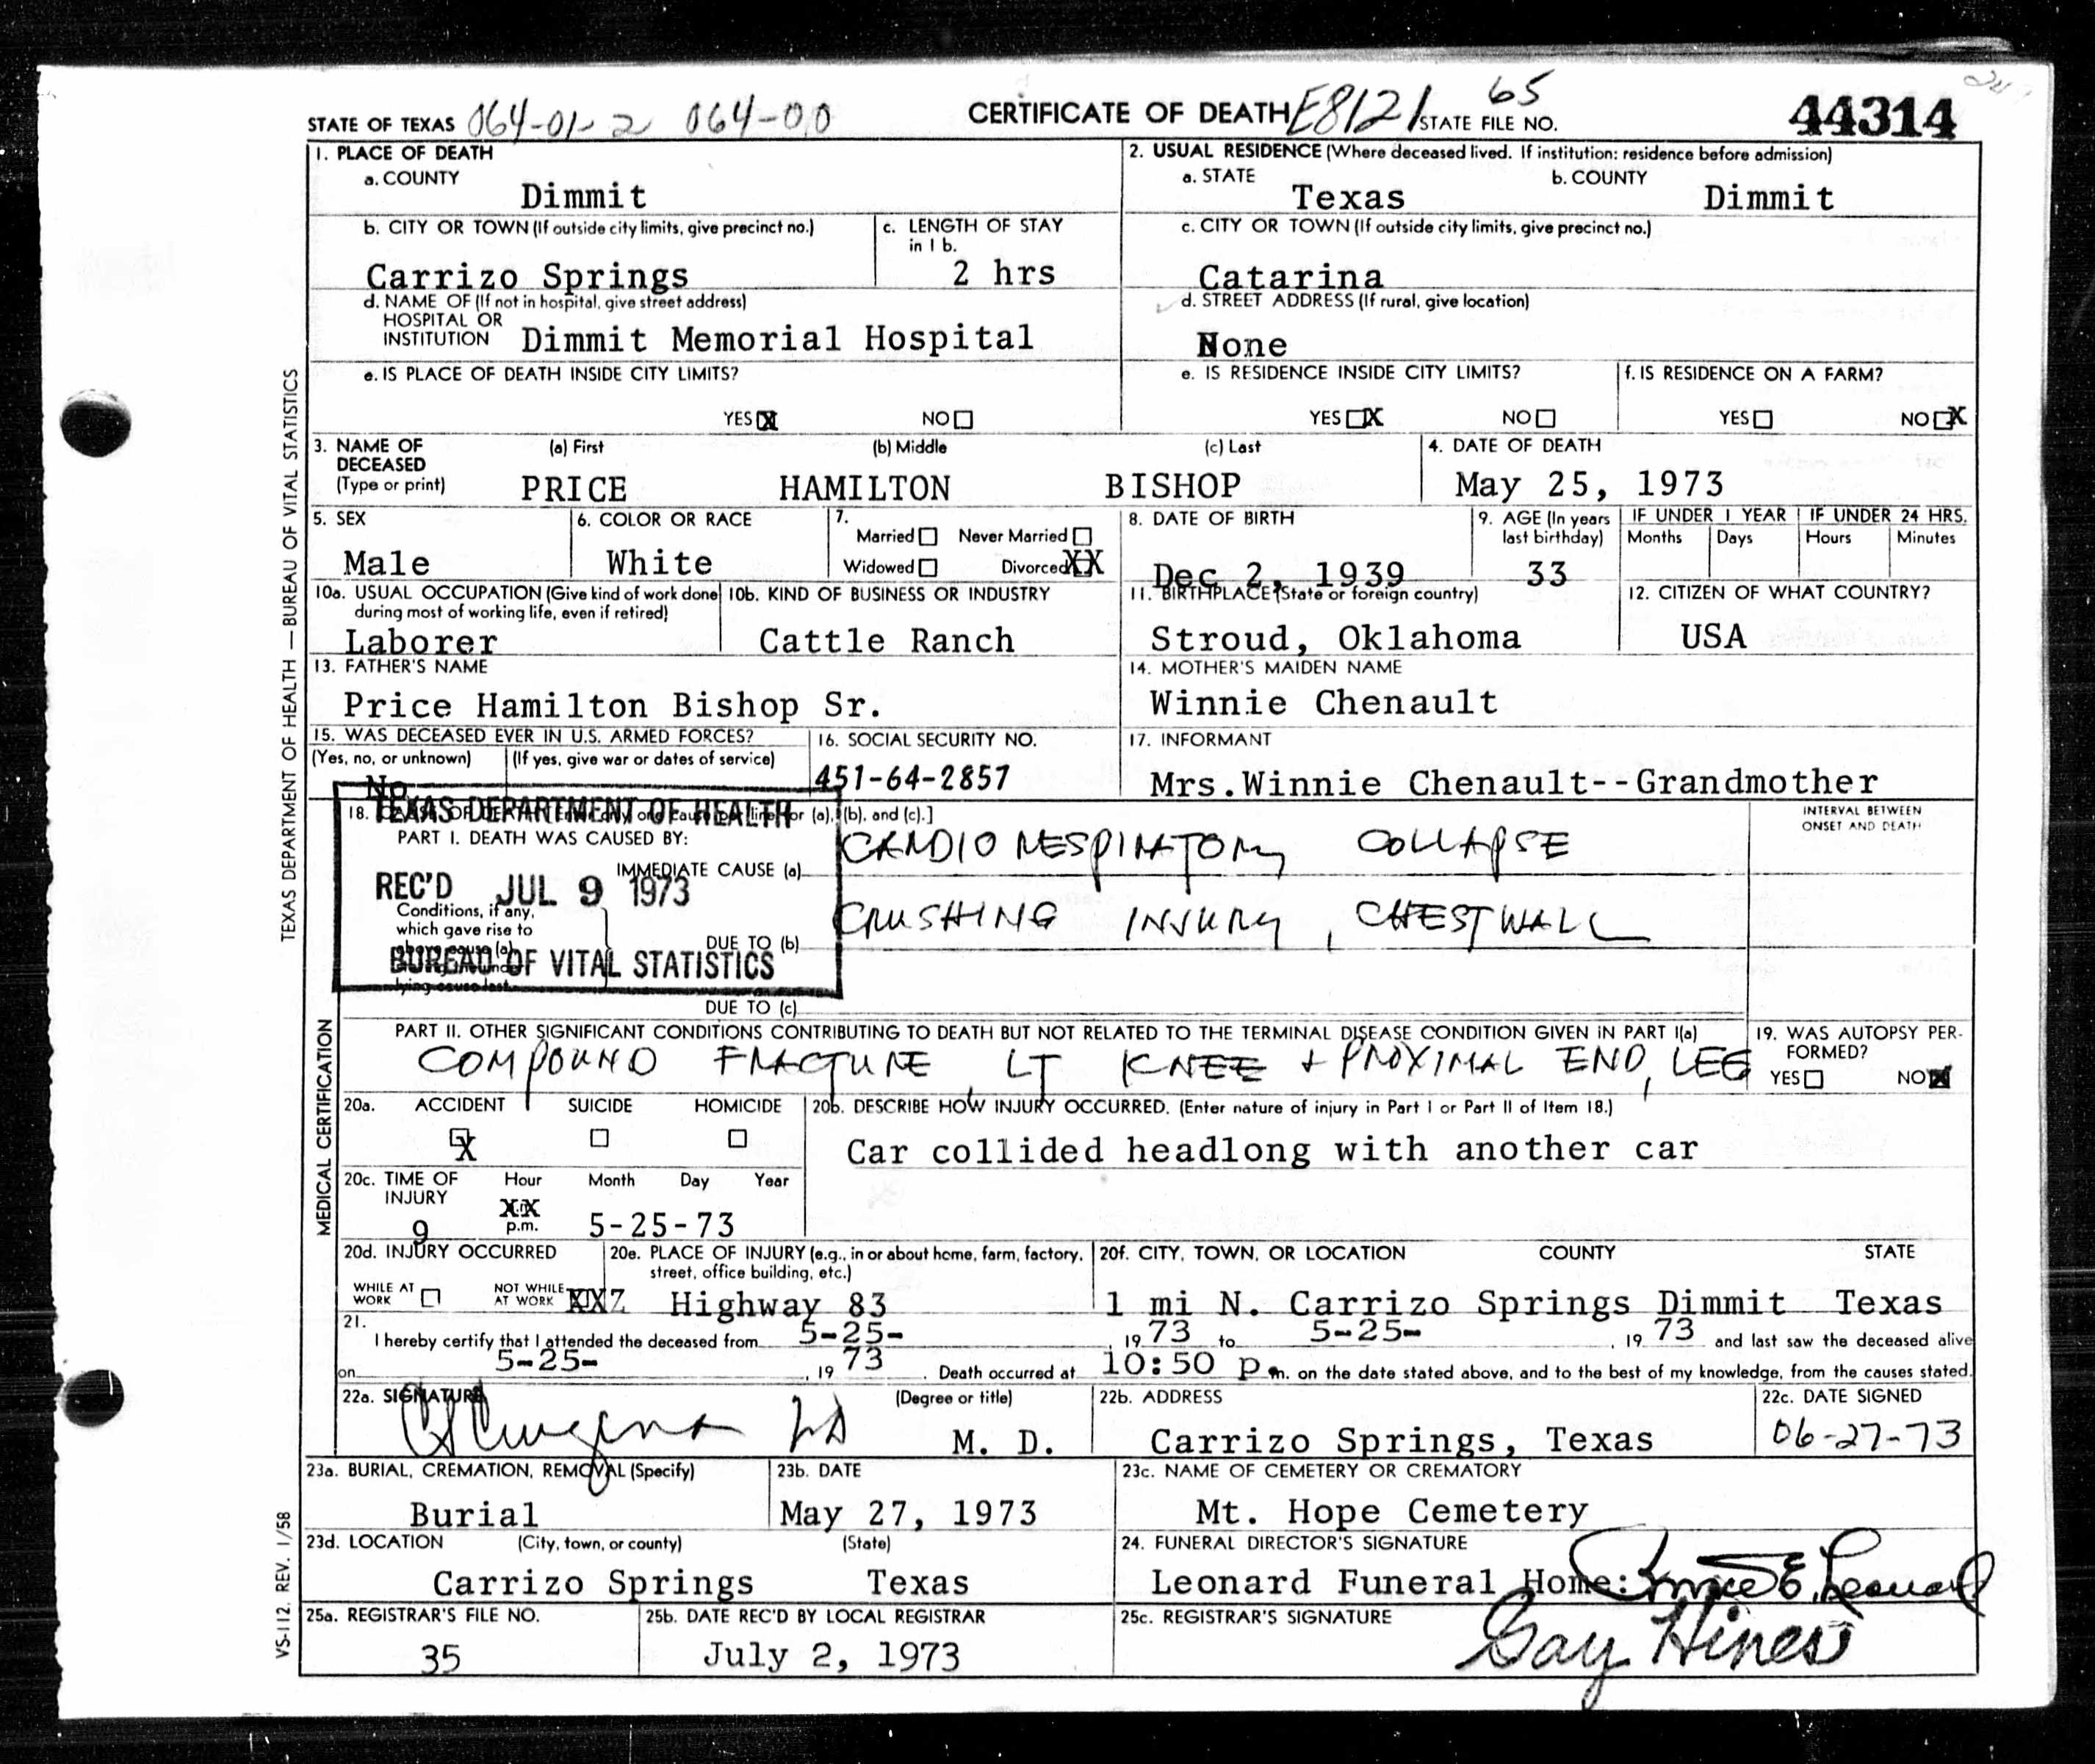 STATE OF TEXAS 064-01-2 064-00 CERTIFICATE OF DEATH E8121 STATE FILE NO. 65 44314
1. PLACE OF DEATH
a. COUNTY
Dimmit
2. USUAL RESIDENCE (Where deceased lived. If institution: residence before admission)
a. STATE b. COUNTY
Texas Dimmit
b. CITY OR TOWN (If outside city limits, give precinct no.)
Carrizo Springs
c. LENGTH OF STAY
in 1 b.
2 hrs
c. CITY OR TOWN (If outside city limits, give precinct no.)
Catarina
d. NAME OF (If not in hospital, give street address)
HOSPITAL OR
INSTITUTION Dimmit Memorial Hospital
d. STREET ADDRESS (If rural, give location)
None
e. IS PLACE OF DEATH INSIDE CITY LIMITS?
YES X NO
e. IS RESIDENCE INSIDE CITY LIMITS?
YES X NO
f. IS RESIDENCE ON A FARM?
YES NO X
3. NAME OF
DECEASED
(Type or print)
(a) First (b) Middle (c) Last
PRICE HAMILTON BISHOP
4. DATE OF DEATH
May 25, 1973
5. SEX
Male
6. COLOR OR RACE
White
7.
Married Never Married
Widowed Divorced XX
8. DATE OF BIRTH
Dec 2, 1939
9. AGE (In years
last birthday)
33
IF UNDER 1 YEAR IF UNDER 24 HRS.
Months Days Hours Minutes
10a. USUAL OCCUPATION (Give kind of work done
during most of working life, even if retired)
Laborer
10b. KIND OF BUSINESS OR INDUSTRY
Cattle Ranch
11. BIRTHPLACE (State or foreign country)
Stroud, Oklahoma
12. CITIZEN OF WHAT COUNTRY?
USA
13. FATHER'S NAME
Price Hamilton Bishop Sr.
14. MOTHER'S MAIDEN NAME
Winnie Chenault
15. WAS DECEASED EVER IN U.S. ARMED FORCES?
(Yes, no, or unknown) (If yes, give war or dates of service)
No
16. SOCIAL SECURITY NO.
451-64-2857
17. INFORMANT
Mrs.Winnie Chenault--Grandmother
TEXAS DEPARTMENT OF HEALTH
REC'D JUL 9 1973
BUREAU OF VITAL STATISTICS
18. (a), (b), and (c).]
INTERVAL BETWEEN
ONSET AND DEATH
PART I. DEATH WAS CAUSED BY:
IMMEDIATE CAUSE (a) CARDIO RESPIRATORY COLLAPSE
Conditions, if any,
which gave rise to
above cause (a)
lying cause last.
DUE TO (b) CRUSHING INJURY, CHESTWALL
DUE TO (c)
PART II. OTHER SIGNIFICANT CONDITIONS CONTRIBUTING TO DEATH BUT NOT RELATED TO THE TERMINAL DISEASE CONDITION GIVEN IN PART I(a)
COMPOUND FRACTURE, LT KNEE + PROXIMAL END, LEG
19. WAS AUTOPSY PER-
FORMED?
YES NO X
20a. ACCIDENT SUICIDE HOMICIDE
X
20b. DESCRIBE HOW INJURY OCCURRED. (Enter nature of injury in Part I or Part II of Item 18.)
Car collided headlong with another car
20c. TIME OF
INJURY
Hour Month Day Year
XX
9 p.m. 5-25-73
20d. INJURY OCCURRED
WHILE AT
WORK
NOT WHILE
AT WORK XXZ
20e. PLACE OF INJURY (e.g., in or about home, farm, factory,
street, office building, etc.)
Highway 83
20f. CITY, TOWN, OR LOCATION COUNTY STATE
1 mi N. Carrizo Springs Dimmit Texas
21.
I hereby certify that I attended the deceased from 5-25- , 19 73 to 5-25- , 19 73 and last saw the deceased alive
on 5-25- , 19 73 . Death occurred at 10:50 p m. on the date stated above, and to the best of my knowledge, from the causes stated.
22a. SIGNATURE (Degree or title)
M. D.
22b. ADDRESS
Carrizo Springs, Texas
22c. DATE SIGNED
06-27-73
23a. BURIAL, CREMATION, REMOVAL (Specify)
Burial
23b. DATE
May 27, 1973
23c. NAME OF CEMETERY OR CREMATORY
Mt. Hope Cemetery
23d. LOCATION (City, town, or county) (State)
Carrizo Springs Texas
24. FUNERAL DIRECTOR'S SIGNATURE
Leonard Funeral Home: E. Leonard
25a. REGISTRAR'S FILE NO.
35
25b. DATE REC'D BY LOCAL REGISTRAR
July 2, 1973
25c. REGISTRAR'S SIGNATURE
Gay Hines
TEXAS DEPARTMENT OF HEALTH — BUREAU OF VITAL STATISTICS
MEDICAL CERTIFICATION
VS-112. REV. 1/58